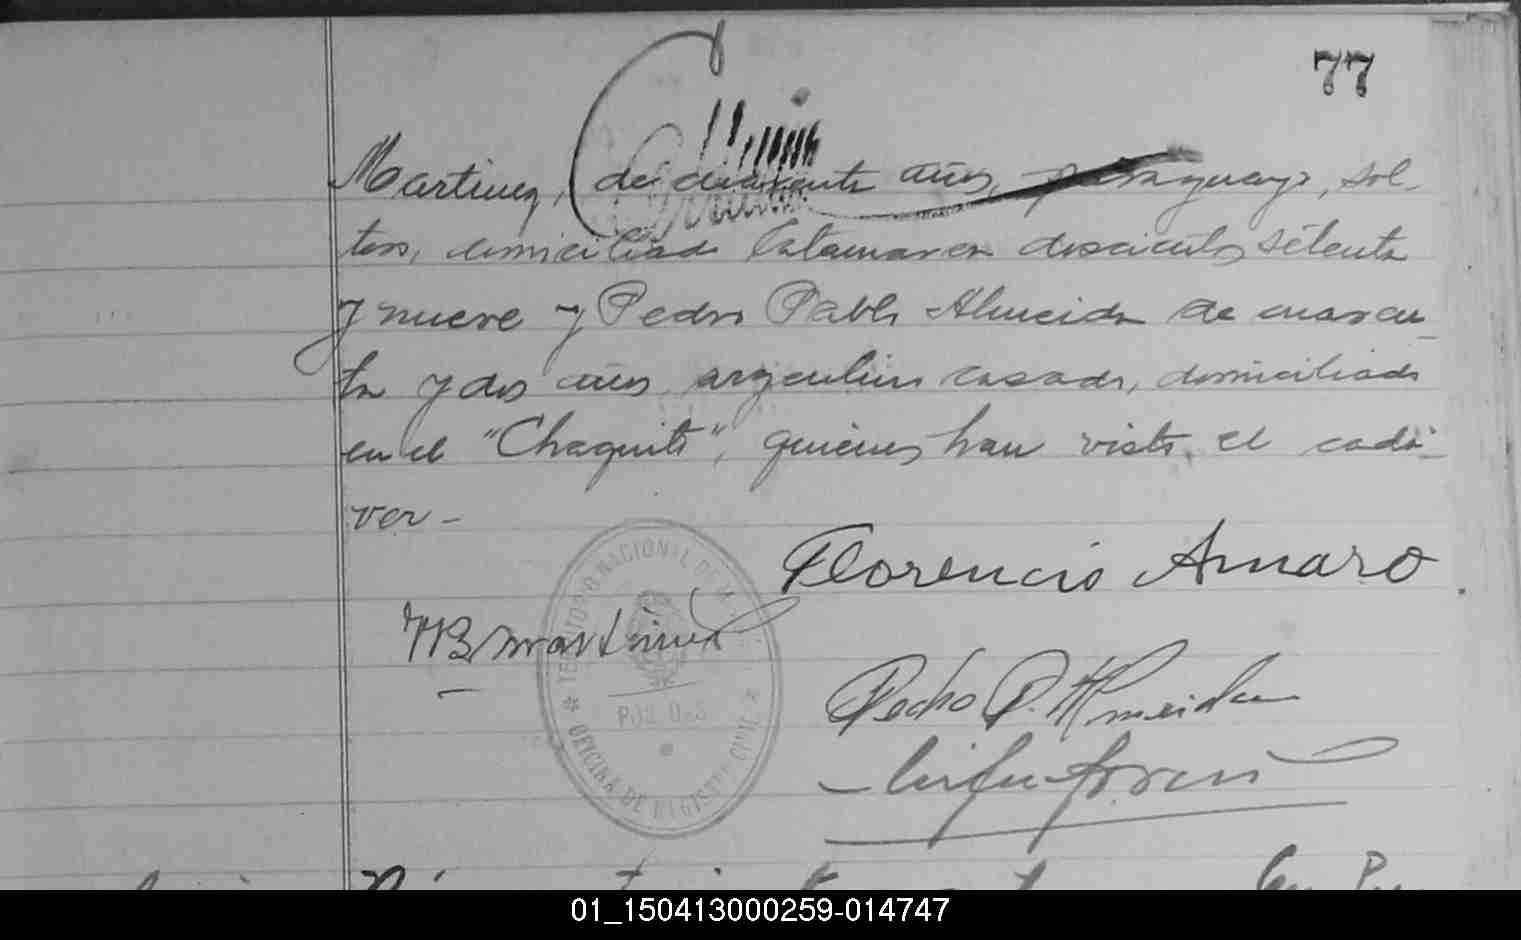 77
Martinez, de cuarenta años, paraguayo, sol-
tero, domiciliado Catamarca doscientos setenta
y nueve y Pedro Pablo Almeida de cuaren-
ta y dos años argentino casado, domiciliado
en el "Chaquito", quienes han visto el cadá-
ver-
Florencio Amaro
MB Martinez
Pedro P. Almeida
TERRITORIO NACIONAL DE
POSADAS
* OFICINA DE REGISTRO CIVIL *
01_150413000259-014747